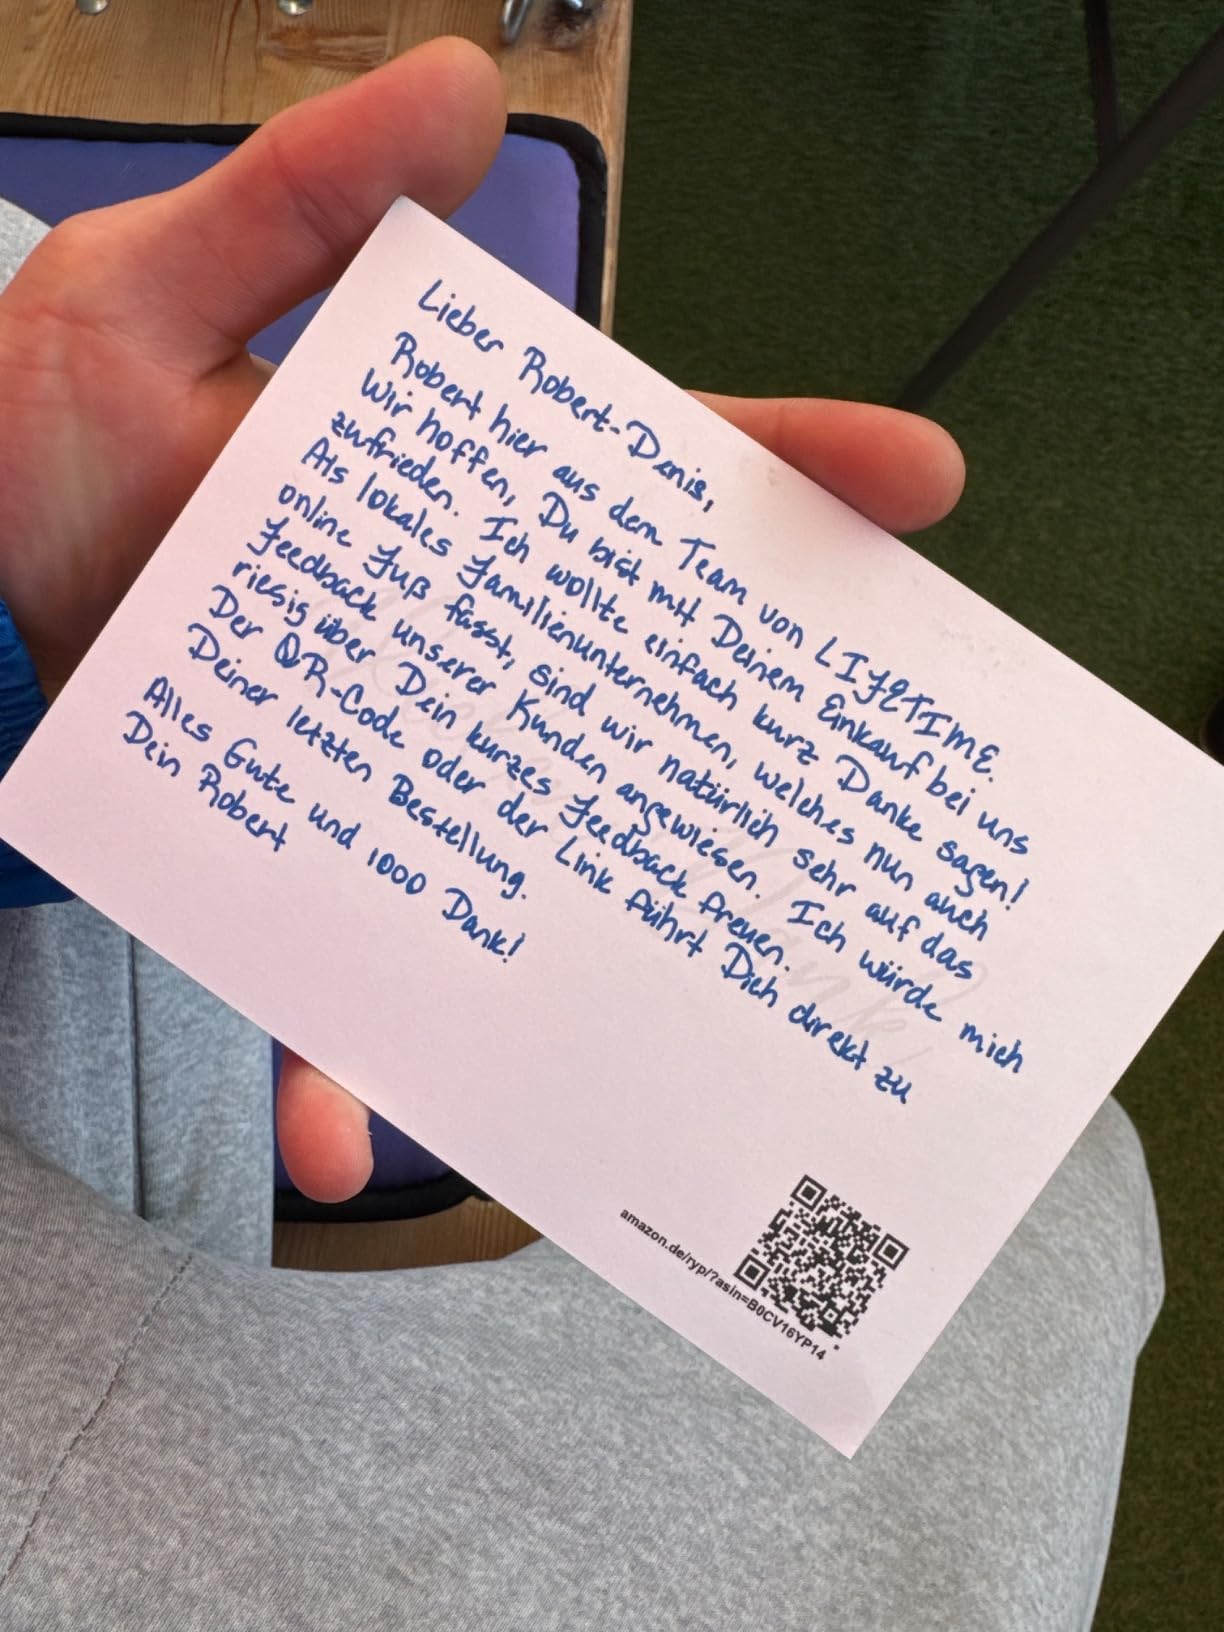 Lieber Robert-Denis,
Robert hier aus dem Team von LIFETIME.
Wir hoffen, Du bist mit Deinem Einkauf bei uns
zufrieden. Ich wollte einfach kurz Danke sagen!
Als lokales Familienunternehmen, welches nun auch
online Fuß fasst, sind wir natürlich sehr auf das
Feedback unserer Kunden angewiesen. Ich würde mich
riesig über Dein kurzes Feedback freuen.
Der QR-Code oder der Link führt Dich direkt zu
Deiner letzten Bestellung.
Alles Gute und 1000 Dank!
Dein Robert
amazon.de/ryp/?asin=B0CV16YP14